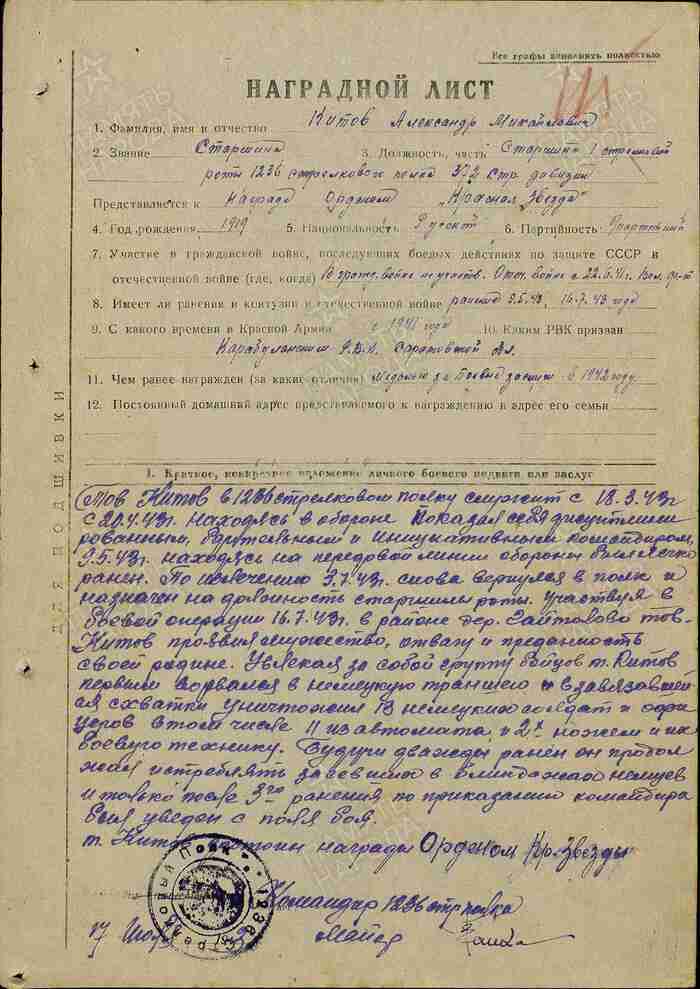 Все графы заполнять полностью
НАГРАДНОЙ ЛИСТ
1. Фамилия, имя и отчество Китов Александр Михайлович
2. Звание Старшина 3. Должность, часть Старшина 1 стрелковой
роты 1236 стрелкового полка 372 стр дивизии
Представляется к награде Орденом „Красная Звезда"
4. Год рождения 1919 5. Национальность Русский 6. Партийность
7. Участие в гражданской войне, последующих боевых действиях по защите СССР и
отечественной войне (где, когда) В гражд. войне не участв. Отеч. войне с 22.6.41г. Вол. фр-т
8. Имеет ли ранения и контузии в отечественной войне ранения 9.5.43, 16.7.43 года
9. С какого времени в Красной Армии с 1941 года 10. Каким РВК призван
Карабулакским Р.В.К. Саратовской обл.
11. Чем ранее награжден (за какие отличия) Медалью за боевые заслуги в 1942 году
12. Постоянный домашний адрес представляемого к награждению и адрес его семьи
ДЛЯ ПОДШИВКИ
1. Краткое, конкретное изложение личного боевого подвига или заслуг
Тов Китов в 1236 стрелковом полку служит с 18.3.43г
с 20.4.43г. находясь в обороне показал себя дисциплини
рованным, бдительным и инициативным командиром,
9.5.43г. находясь на передовой линии обороны был легко
ранен. По излечению 3.7.43г. снова вернулся в полк и
назначен на должность старшины роты. Участвуя в
боевой операции 16.7.43г. в районе дер. Сайтолово тов.
Китов проявил мужество, отвагу и преданность
своей родине. Увлекая за собой группу бойцов т. Китов
первым ворвался в немецкую траншею и в завязавшей
ся схватки уничтожил 13 немецких солдат и офи
церов в том числе 11 из автомата, и 2х ножем и их
боевую технику. Будучи дважды ранен он продол
жал истреблять засевших в блиндажах немцев
и только после 3го ранения по приказанию командира
был уведен с поля боя.
т. Китов достоин награды Орденом Кр. Звезды
Командир 1236 стр полка
17 Июля 1943 Майор